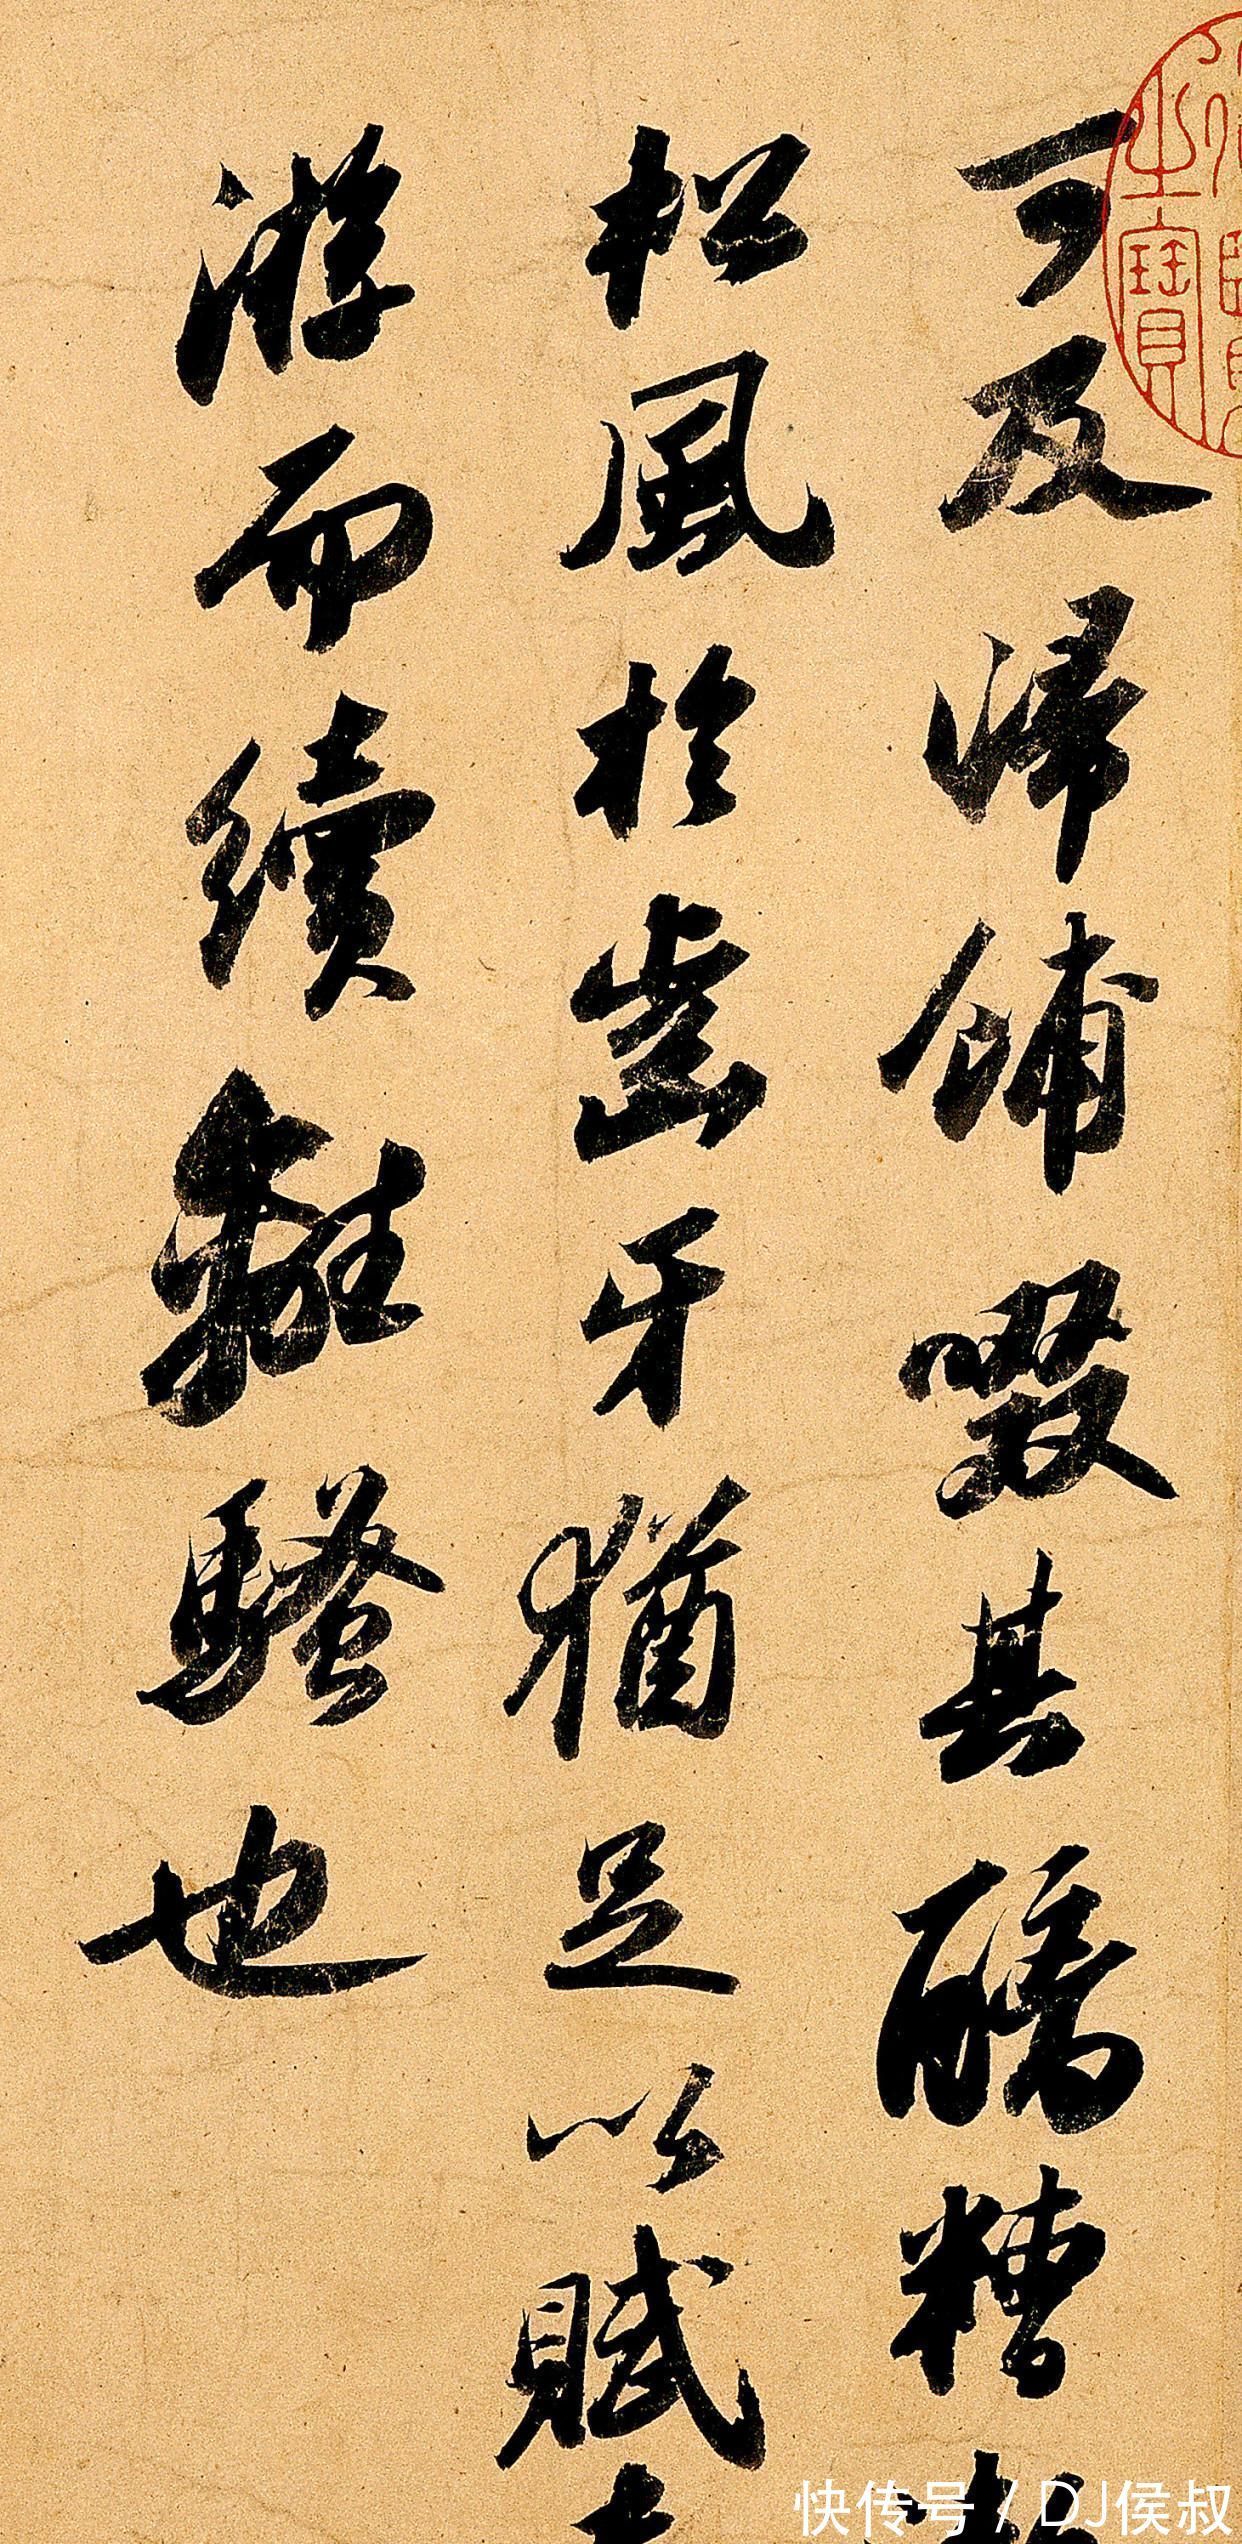 可及歸餔啜其醨糟
松風於齒牙猶足以賦
游而續離騷也
之寶
快传号 / DJ侯叔